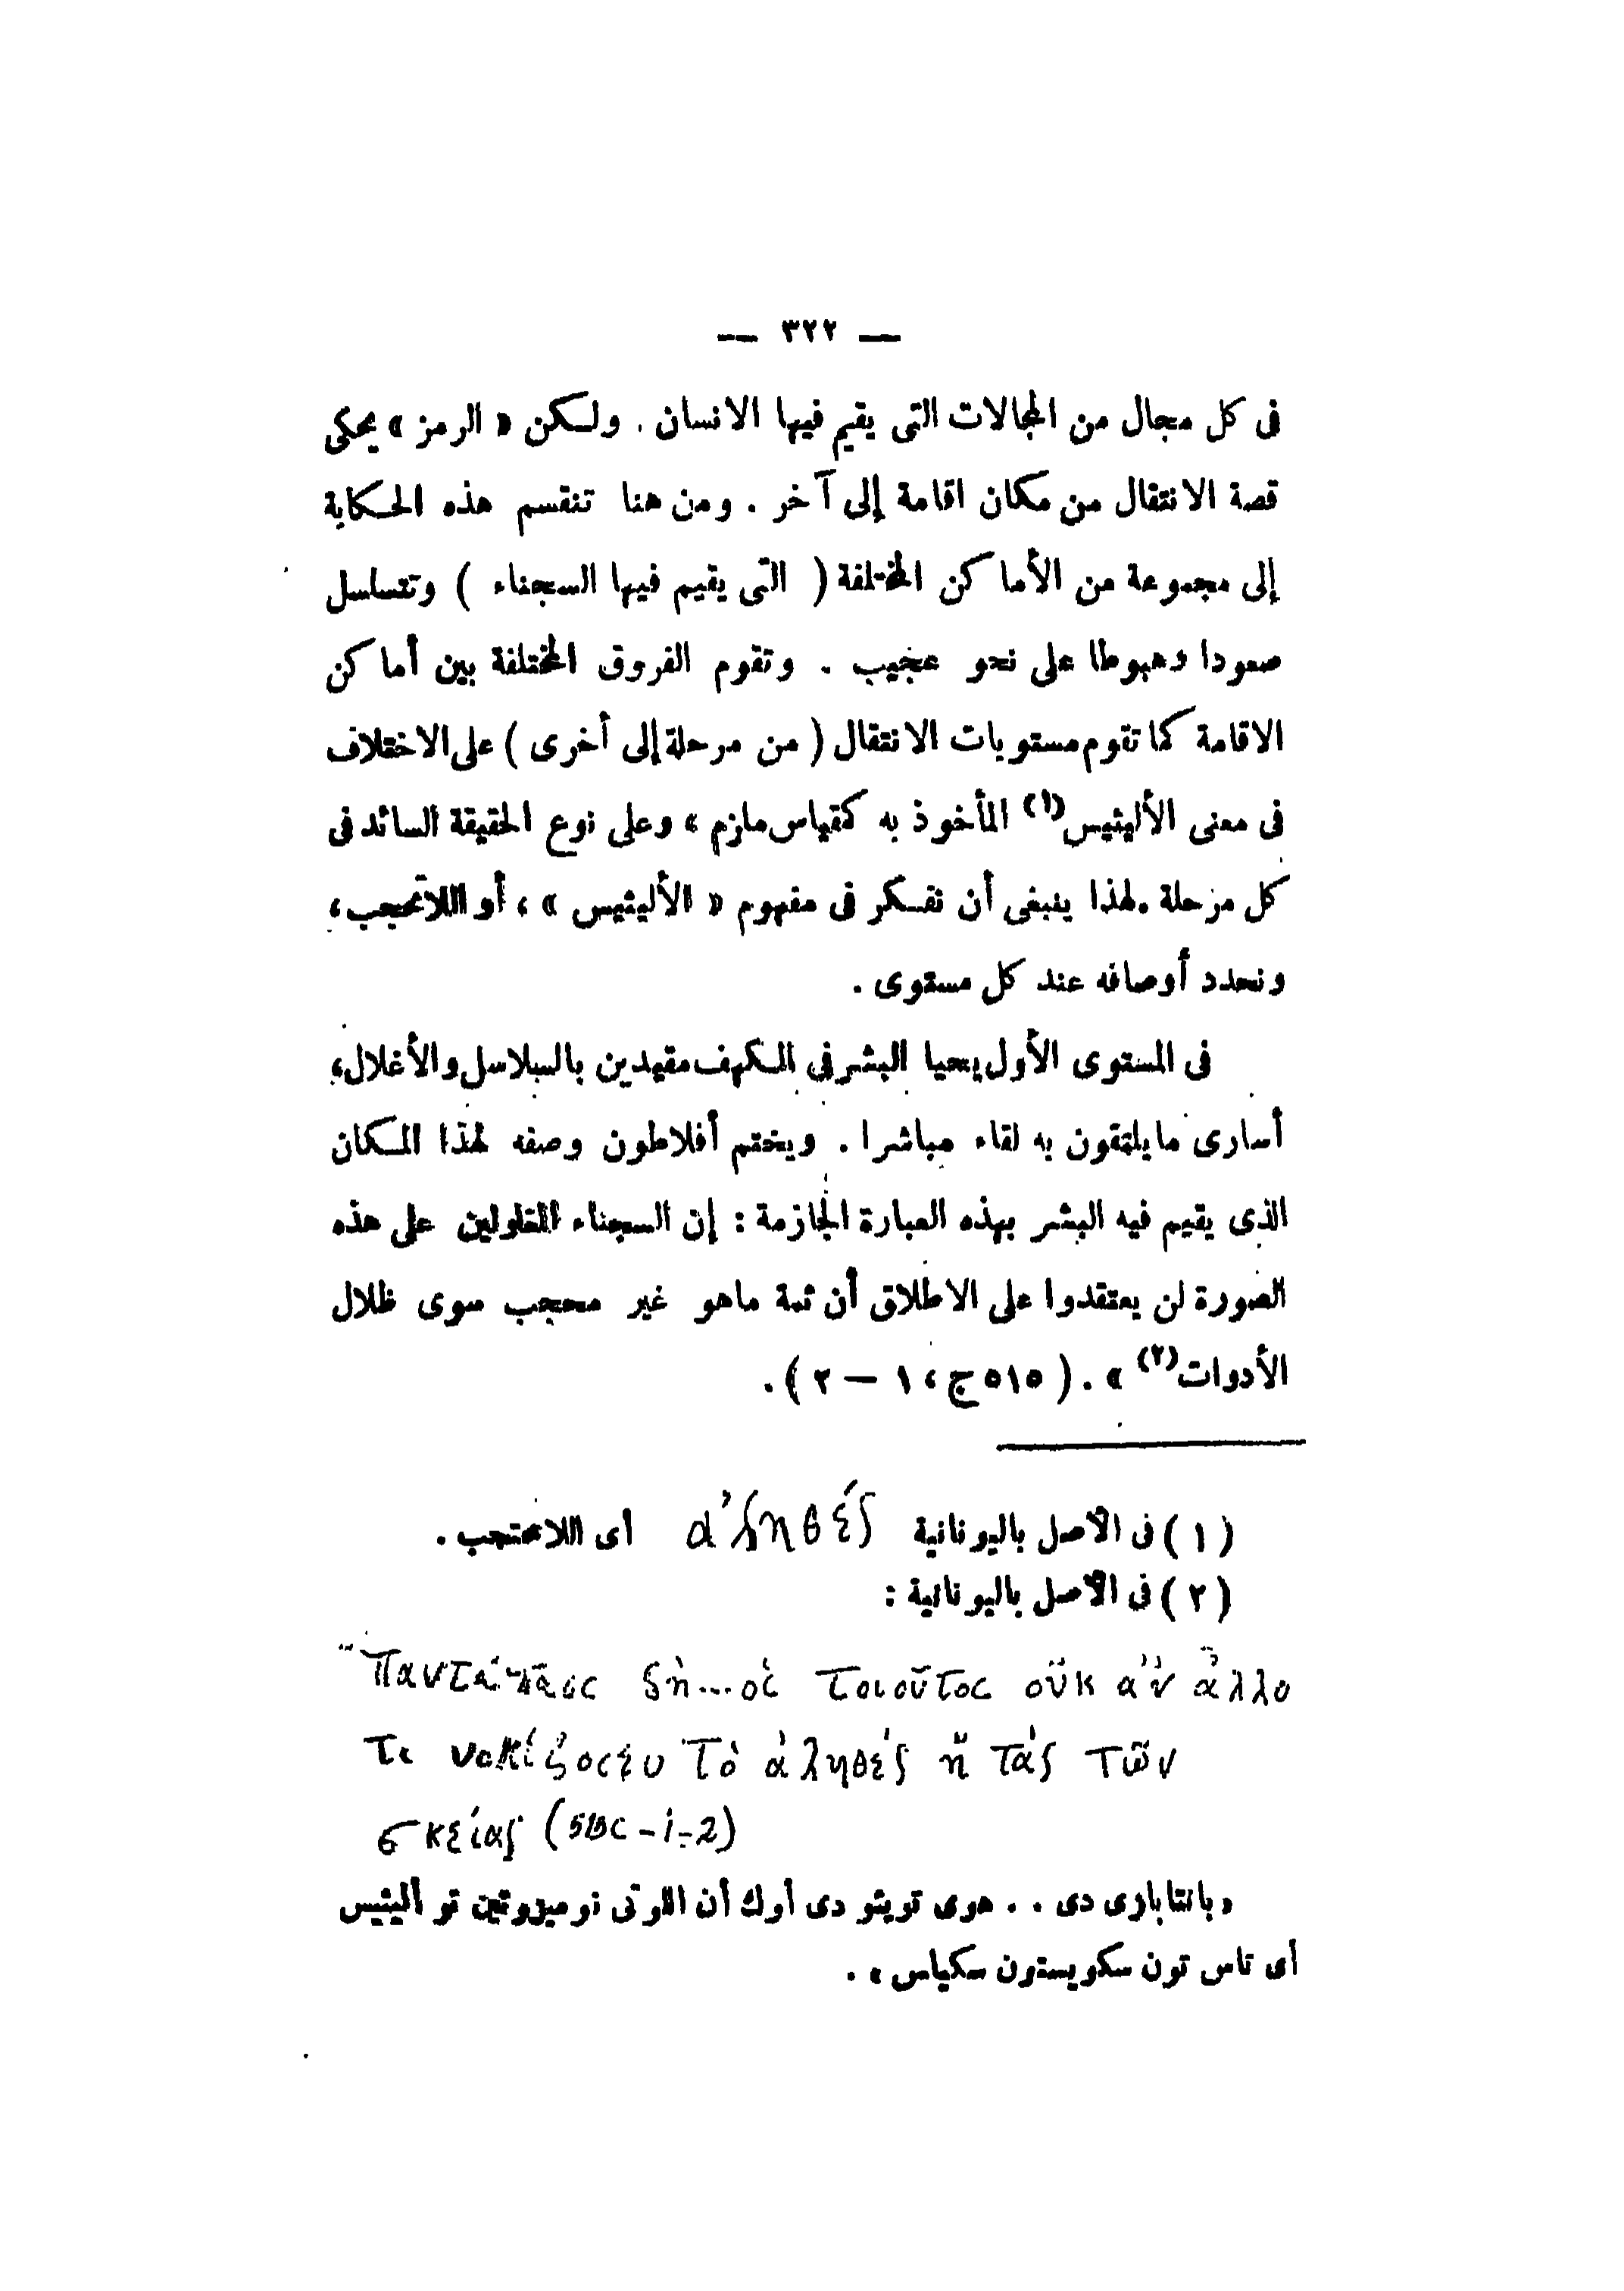 — ٣٢٢ —
فى كل مجال من المجالات التى يقيم فيها الانسان . ولكن « الرمز » يحكى
قصة الانتقال من مكان اقامة إلى آخر . ومن هنا تنقسم هذه الحكاية
إلى مجموعة من الأماكن المختلفة ( التى يقيم فيها السجناء ) وتتسلسل
صعودا وهبوطا على نحو عجيب . وتقوم الفروق المختلفة بين أماكن
الاقامة كما تقوم مستويات الانتقال ( من مرحلة إلى أخرى ) على الاختلاف
فى معنى الأليثيس(١) المأخوذ به كمقياس ملزم ، وعلى نوع الحقيقة السائد فى
كل مرحلة . لهذا ينبغى أن نفكر فى مفهوم « الأليثيس » ، أو اللاتحجب ،
ونحدد أوصافه عند كل مستوى .
فى المستوى الأول يحيا البشر فى الكهف مقيدين بالسلاسل والأغلال ،
أسارى ما يلتقون به لقاء مباشرا . ويختم أفلاطون وصفه لهذا المكان
الذى يقيم فيه البشر بهذه العبارة الجازمة : إن السجناء المغلولين على هذه
الصورة لن يعتقدوا على الاطلاق أن ثمة ماهو غير محجب سوى ظلال
الأدوات(٢) » . ( ٥١٥ ج ، ١ — ٢ ) .
( ١ ) فى الأصل باليونانية ἀληθές أى اللامحتجب .
( ٢ ) فى الأصل باليونانية :
"Παντάπασι δὴ...οἱ τοιοῦτοι οὔκ ἀν ἄλλο
τι νομίζοιεν τὸ ἀληθές ἤ τάς τῶν
σκείας (515c-1-2)
« بانتابازى دى . . هوى تويتو دى أوك أن اللو تى نوميزوئين تو أليثيس
أى تاس تون سكويستون سكياس » .